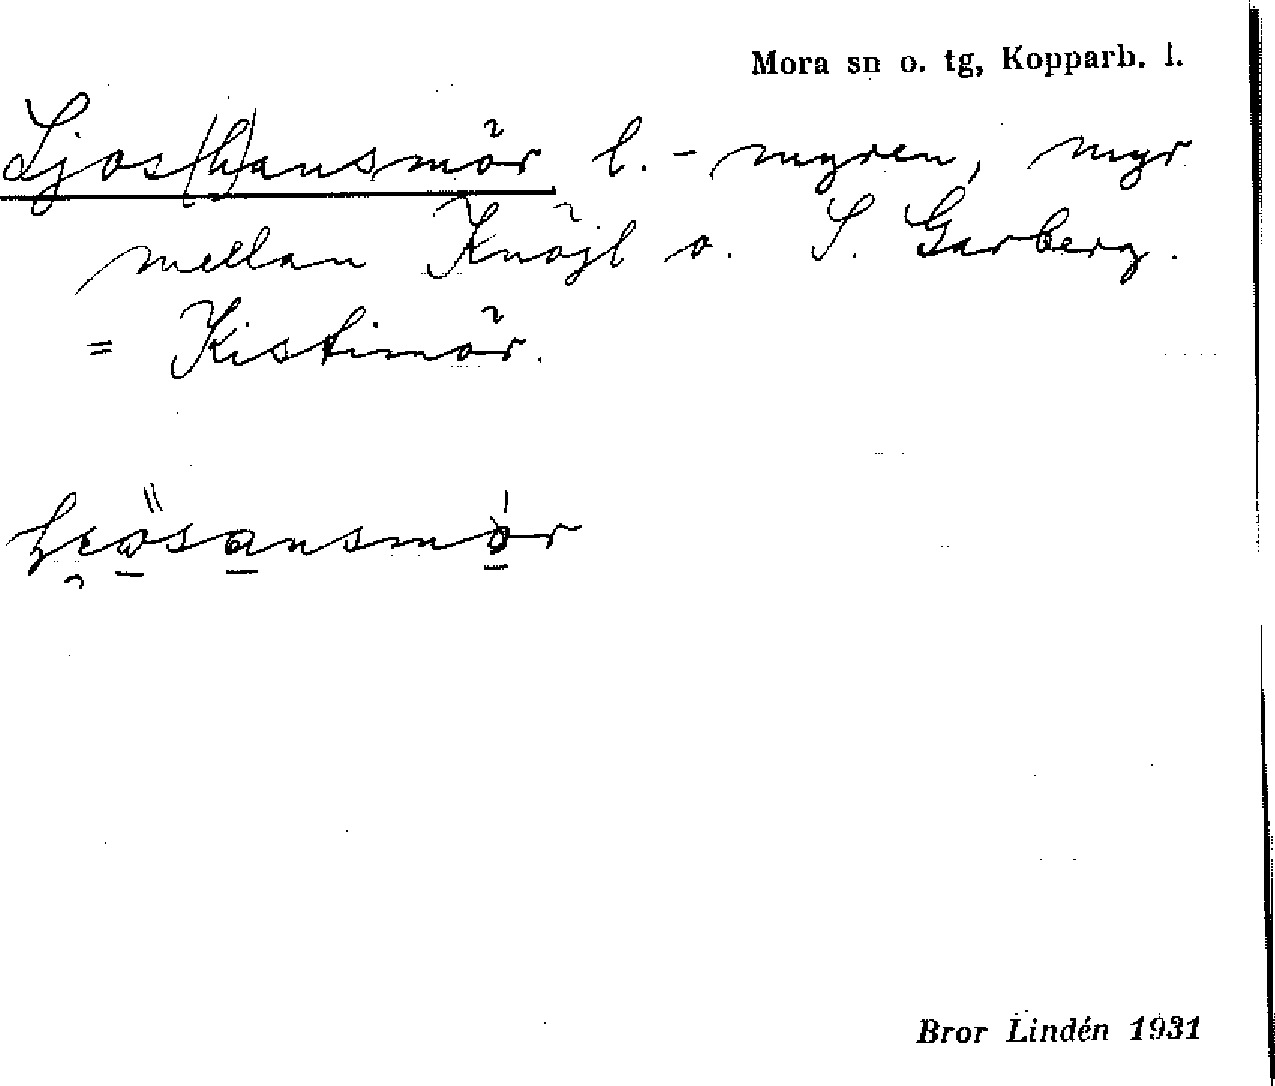 Mora sn o. tg, Kopparb. l.
Ljos(h)ansmõr l. -myren, myr
mellan Knõjl o. S. Garberg.
= Kistimõr.
Bror Lindén 1931